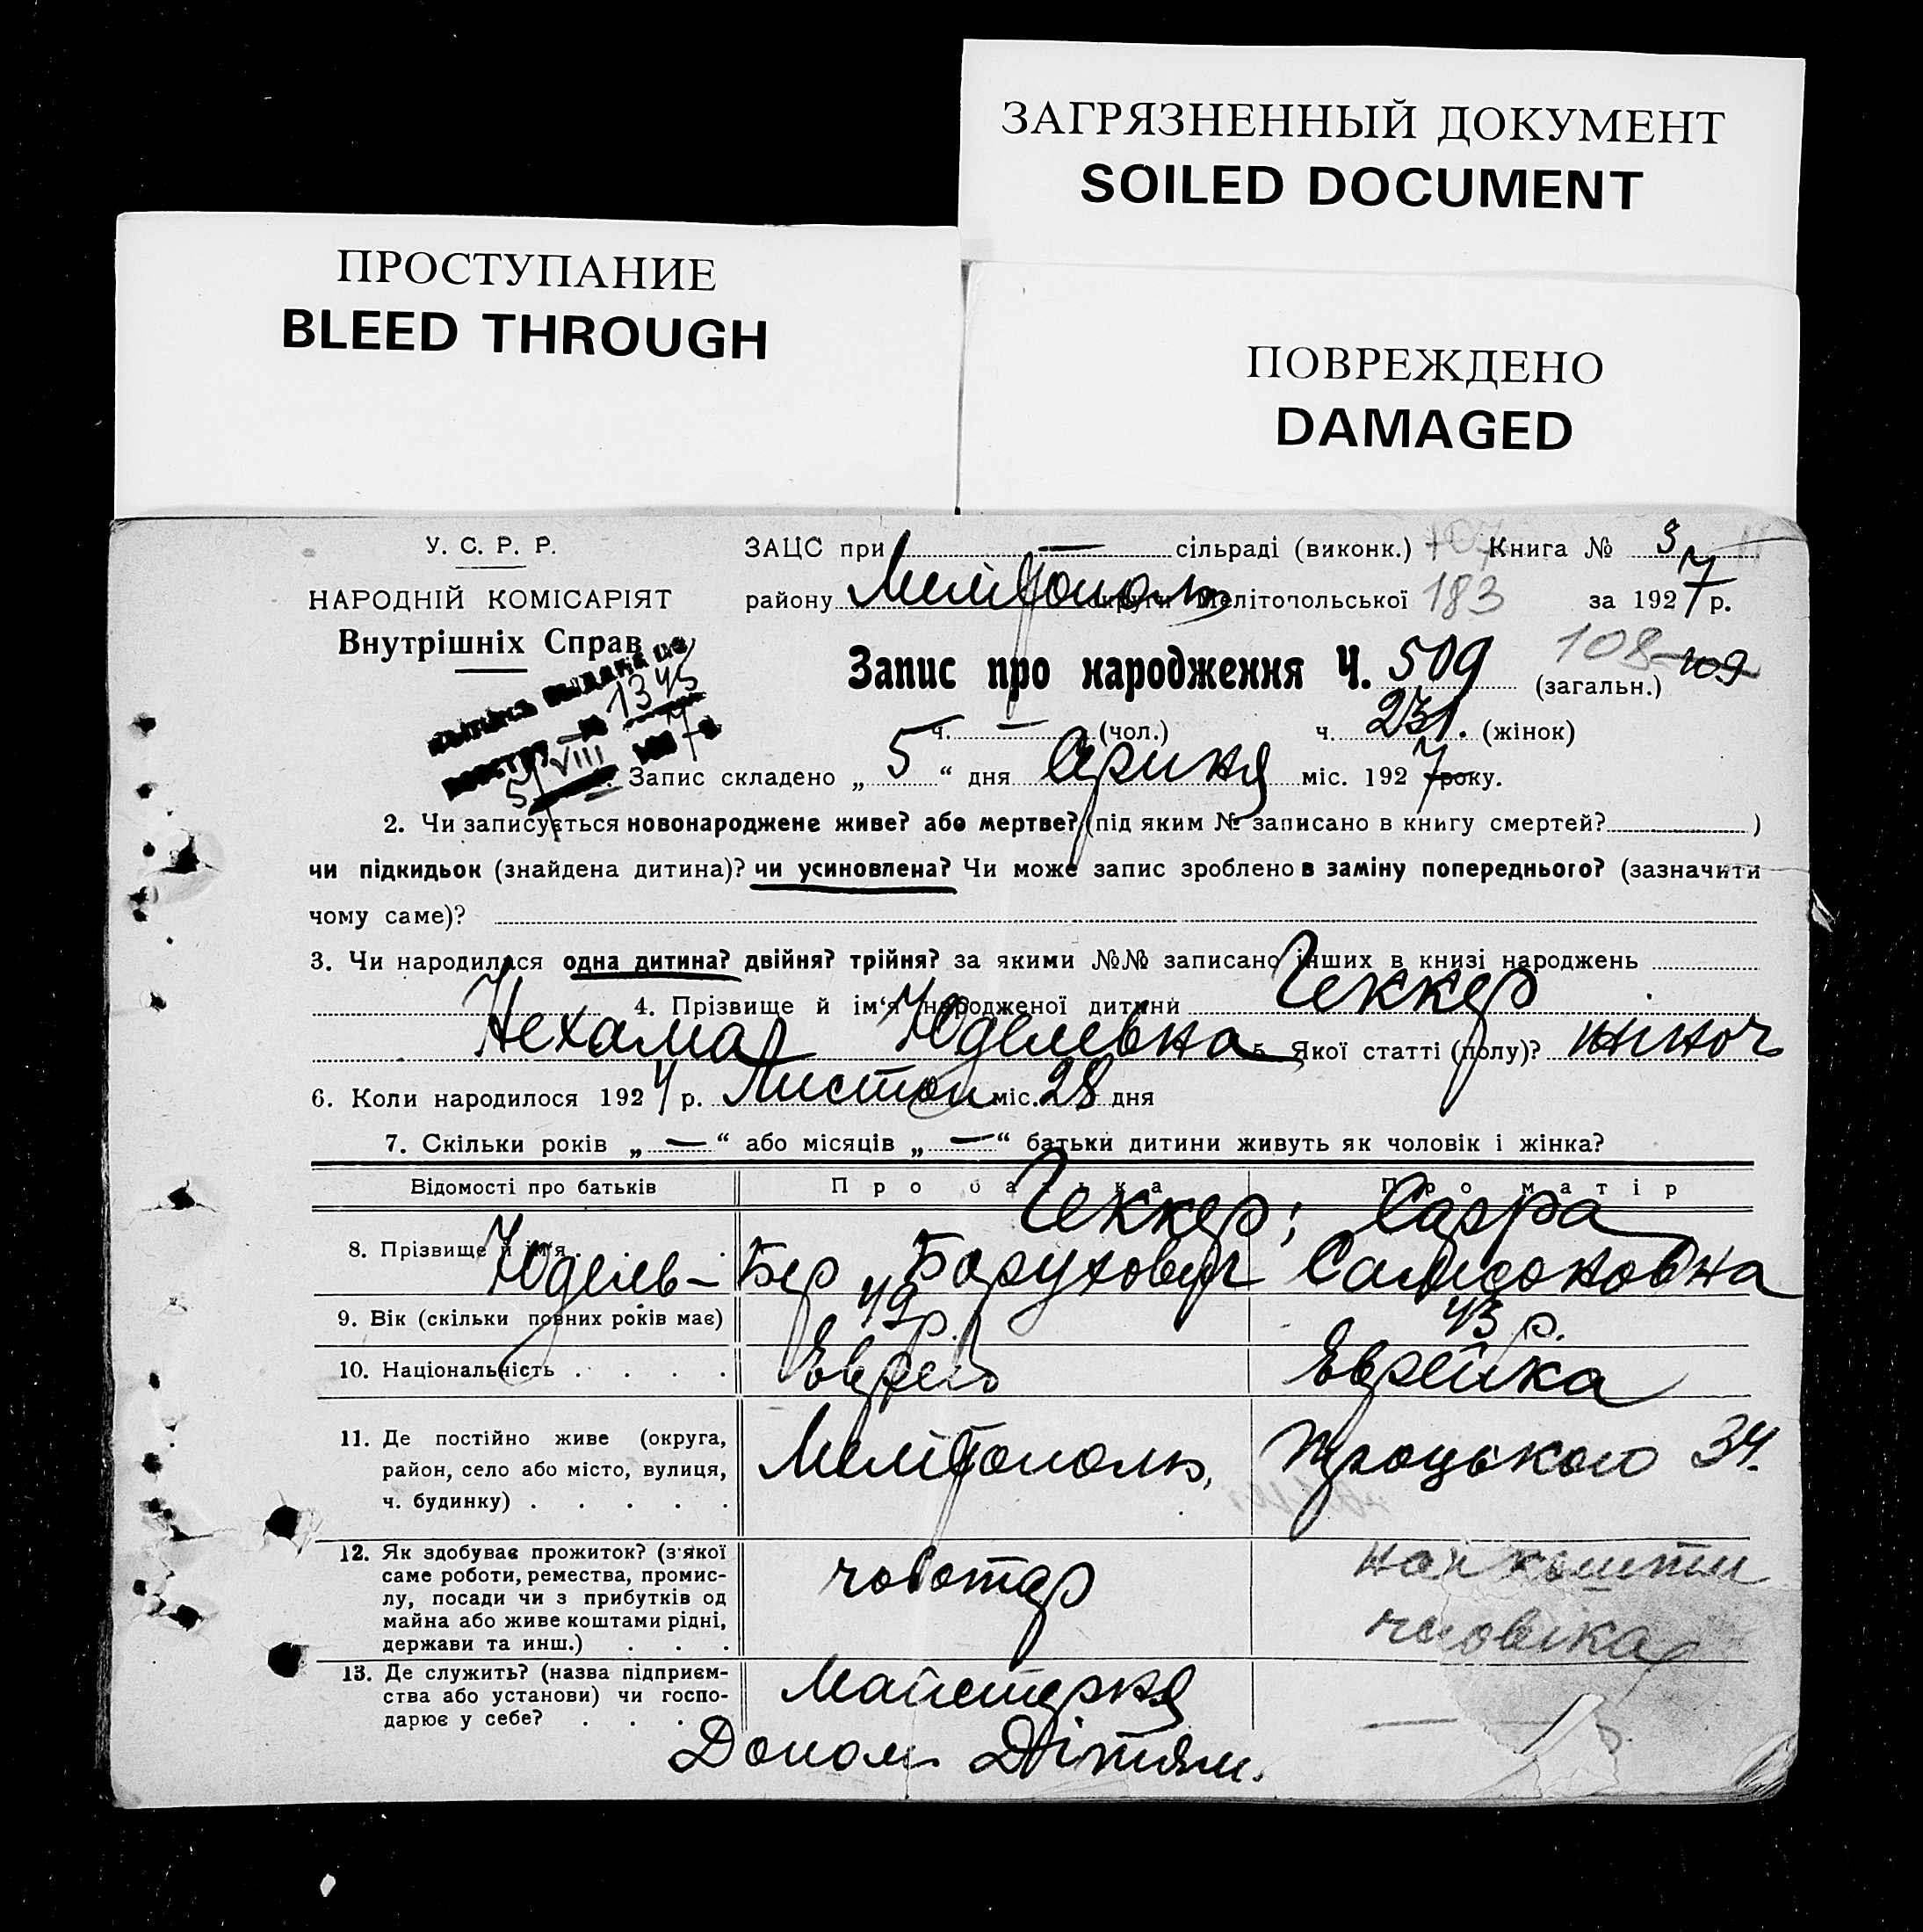 ЗАГРЯЗНЕННЫЙ ДОКУМЕНТ
SOILED DOCUMENT
ПРОСТУПАНИЕ
BLEED THROUGH
ПОВРЕЖДЕНО
DAMAGED
У. С. Р. Р.
НАРОДНІЙ КОМІСАРІЯТ
Внутрішніх Справ
ЗАЦС при — сільраді (виконк.) Книга № 3
району Мелітополь округи Мелітопольської 183 за 1927 р.
Запис про народження Ч. 509 (загальн.) 108 109
ч. — (чол.) ч. 231. (жінок)
1345
5/VIII
Запис складено „ 5 “ дня міс. 1927 року.
2. Чи записується новонароджене живе? або мертве? (під яким № записано в книгу смертей? )
чи підкидьок (знайдена дитина)? чи усиновлена? Чи може запис зроблено в заміну попереднього? (зазначити
чому саме)?
3. Чи народилася одна дитина? двійня? трійня? за якими №№ записано інших в книзі народжень
4. Прізвище й ім'я народженої дитини Геккер
Нехама Юделевна 5. Якої статті (полу)? жіноч
6. Коли народилося 192 р. Листоп міс. 28 дня
7. Скільки років „ — “ або місяців „ — “ батьки дитини живуть як чоловік і жінка?
Відомості про батьків Про батька Про матір
Геккер; Сарра
8. Прізвище й ім'я . . Юделев-Бер Борухович Самсоновна
9. Вік (скільки повних років має) 49 р. 43 р.
10. Національність . . . . Еврей Еврейка
11. Де постійно живе (округа,
район, село або місто, вулиця,
ч. будинку) . . . . . Мелітополь, Троцького 34.
12. Як здобуває прожиток? (з'якої
саме роботи, ремества, промис-
лу, посади чи з прибутків од
майна або живе коштами рідні,
держави та инш.) . . . чоботар на кошти
чоловіка
13. Де служить? (назва підприєм-
ства або установи) чи госпо-
дарює у себе? . . . Майстерня —
Допом. Дітям.